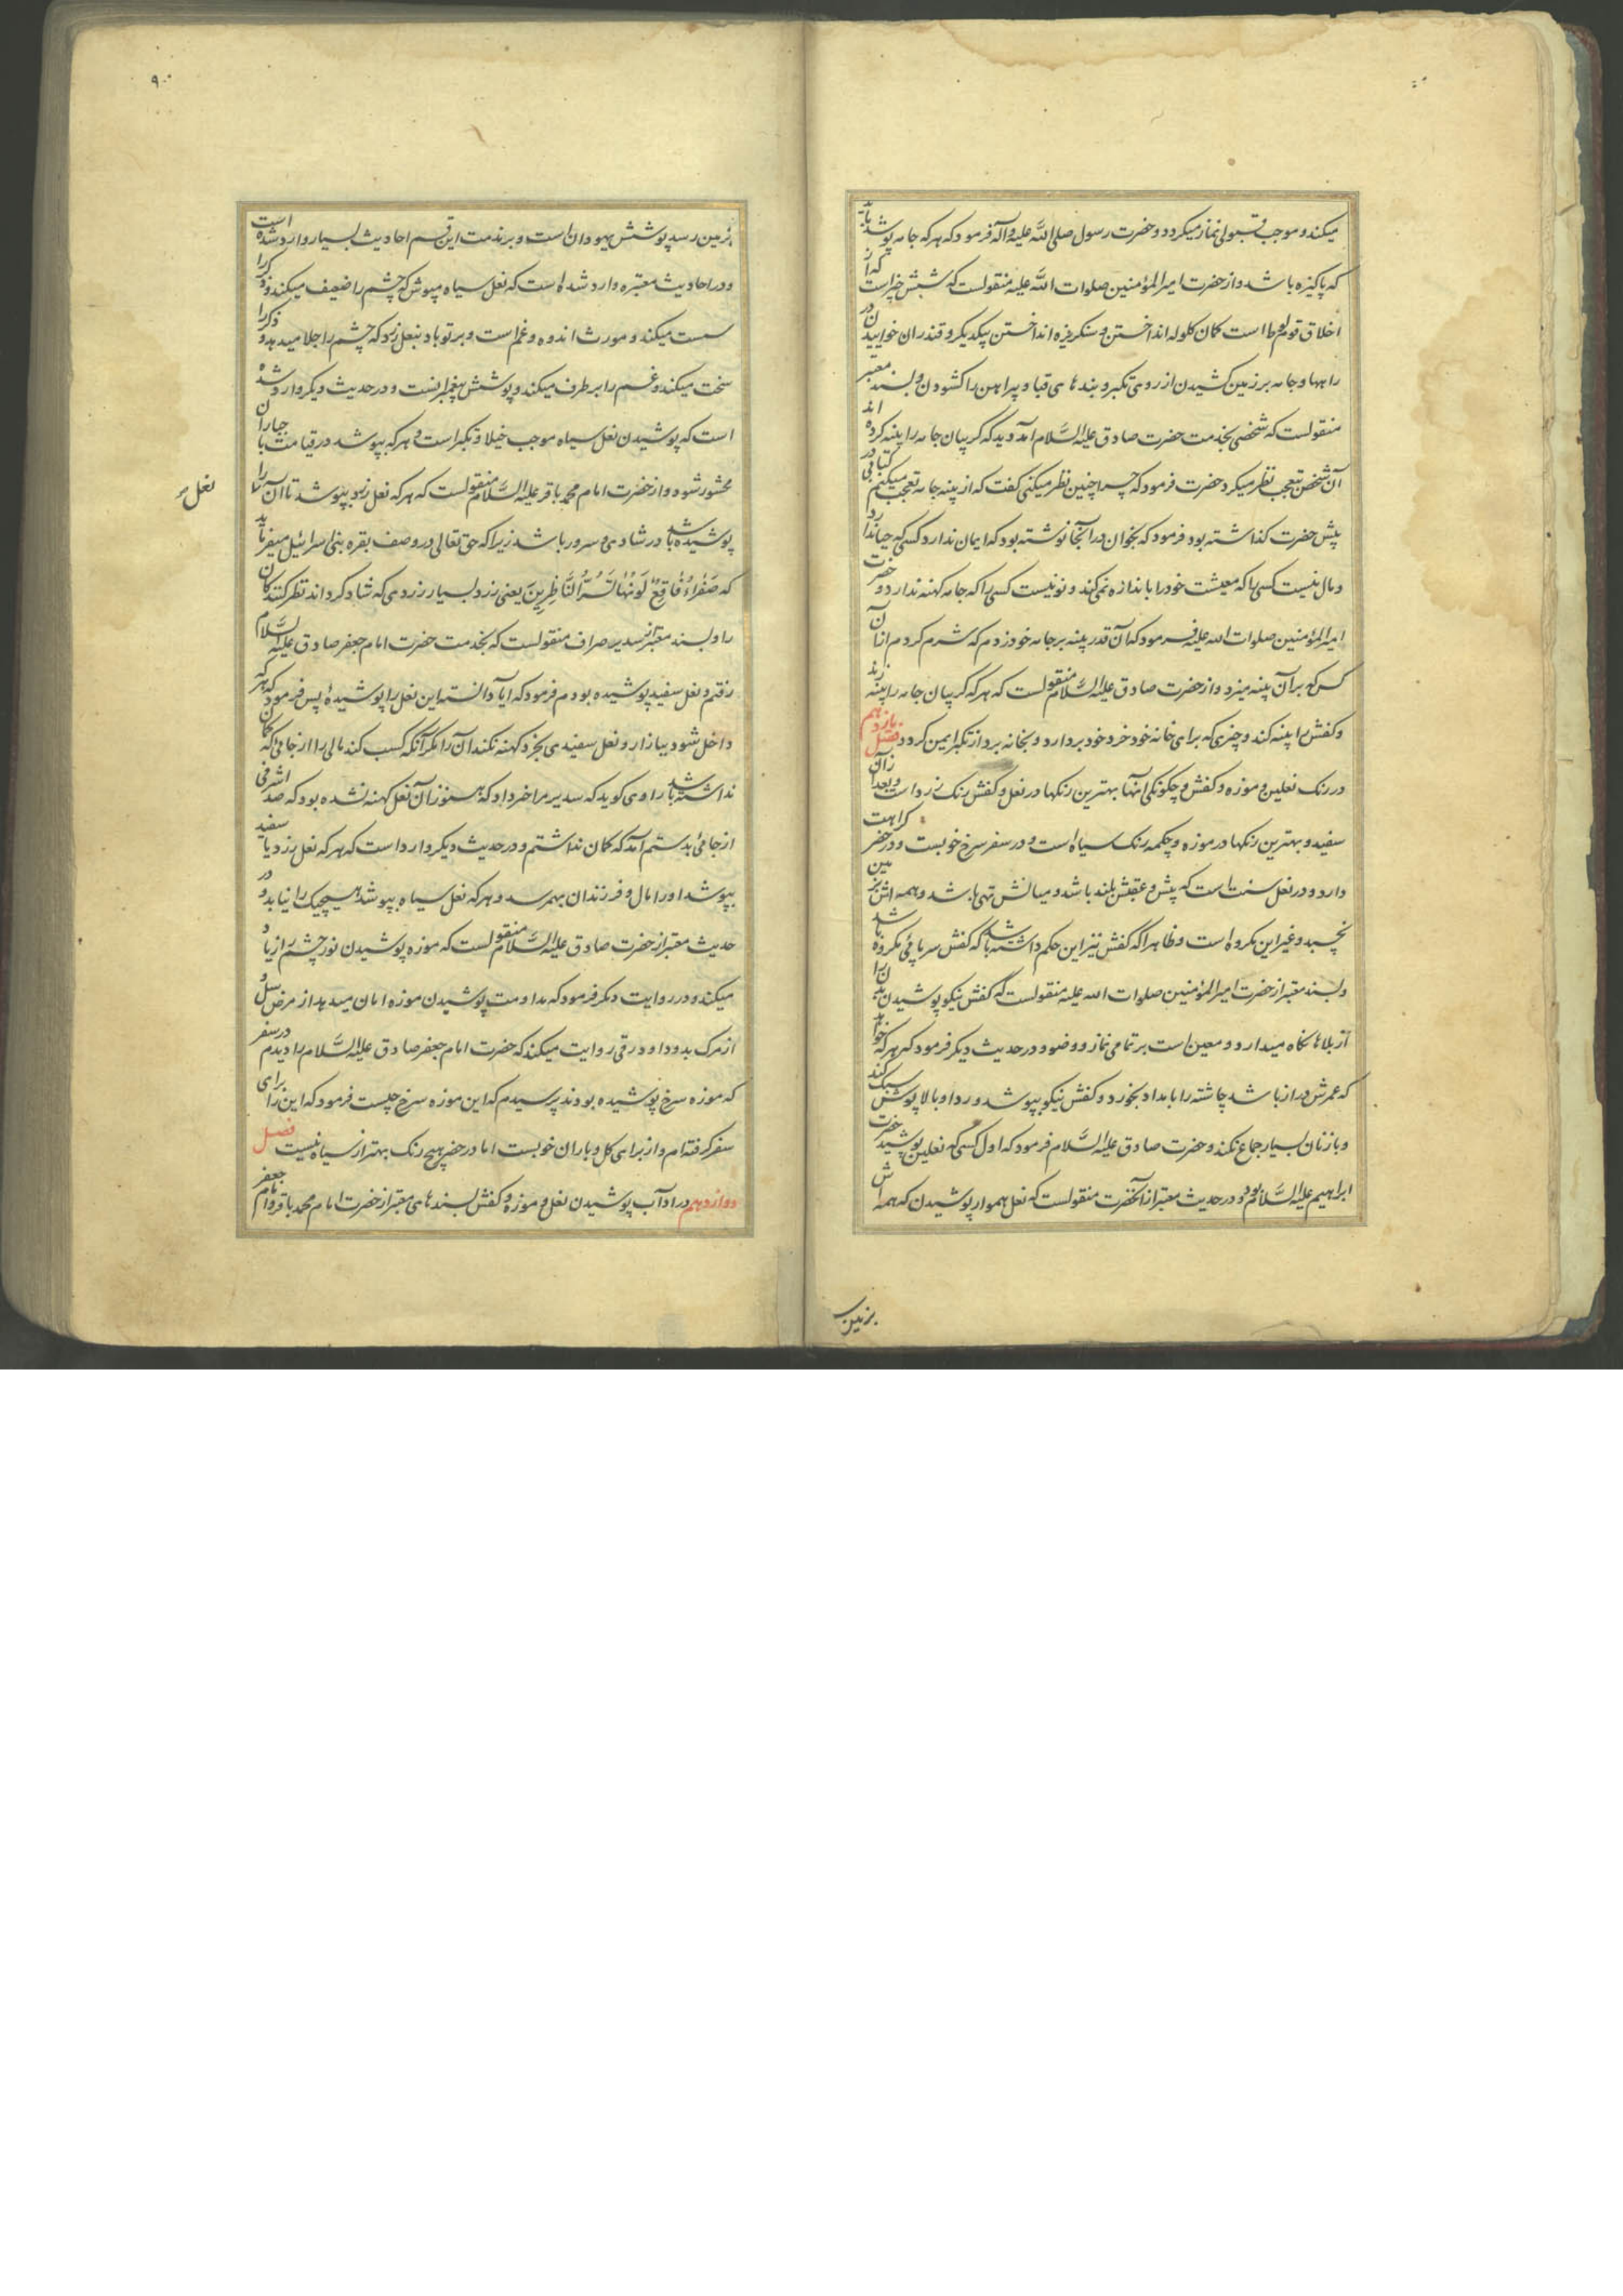 میکند و موجب قبولی نماز میکردد و حضرت رسول صلی الله علیه و آله فرمود که هر که جامه پوشد باید
که پاکیزه باشد و از حضرت امیر المؤمنین صلوات الله علیه منقولست که شش چیز است که از
اخلاق قوم لوط است کمان کلوله انداختن و سنکریزه انداختن بیکدیکر و قندران خواییدن در
راهها و جامه بر زمین کشیدن از روی تکبر و بندهای قبا و پیراهن را کشودن و بسند معتبر
منقولست که شخصی بخدمت حضرت صادق علیه السلام آمد و دید که کریبان جامه را پینه کرده اند
آن شخص بتعجب نظر میکرد حضرت فرمود که چرا چنین نظر میکنی کفت که از پینه جامه تعجب میکنم کتابی در
پیش حضرت کذاشته بود فرمود که بخوان در آنجا نوشته بود که ایمان ندارد کسی که حیا ندارد
و مال نیست کسی را که معیشت خود را باندازه نمی کند و نو نیست کسی را که جامه کهنه ندارد و حضرت
امیر المؤمنین صلوات الله علیه فرمود که آن قدر پینه بر جامه خود زدم که شرم کردم از آن
کس که بر آن پینه میزد و از حضرت صادق علیه السلام منقولست که هر که کریبان جامه را پینه زند
و کفش را پینه کند و چیزی که برای خانه خود خرد خود بردارد و بخانه برد از تکبر ایمن کردد فصل یازدهم
در رنک نعلین و موزه و کفش و چکونکی آنها بهترین رنکها در نعل و کفش رنک زرد است و بعد از آن
سفید و بهترین رنکها در موزه و چکمه رنک سیاه است و در سفر سرخ خوبست و در حضر کراهت
دارد و در نعل سنت است که پیش و عقبش بلند باشد و میانش تهی باشد و همه اش بزمین
نچسبد و غیر این مکروه است و ظاهرا که کفش نیز این حکم داشته باشد که کفش سر پائی مکروه باشد
و بسند معتبر از حضرت امیر المؤمنین صلوات الله علیه منقولست که کفش نیکو پوشیدن بدن را
از بلاها نکاه میدارد و معین است بر تمامی نماز و وضو و در حدیث دیکر فرمود که هر که خواهد
که عمرش دراز باشد چاشته را بامداد بخورد و کفش نیکو بپوشد و ردا و بالاپوش سبک کند
و با زنان بسیار جماع نکند و حضرت صادق علیه السلام فرمود که اول کسی که نعلین پوشید حضرت
ابراهیم علیه السلام بود و در حدیث معتبر از آنحضرت منقولست که نعل هموار پوشیدن که همه اش
بزمین رسد
۹۰
بزمین رسد پوشش یهودان است و بر مذمت این قسم احادیث بسیار وارد شده است
و در احادیث معتبره وارد شده است که نعل سیاه مپوش که چشم را ضعیف میکند و ذکر را
سست میکند و مورث اندوه و غم است و بر تو باد بنعل زرد که چشم را جلا میدهد و ذکر را
سخت میکند و غم را بر طرف میکند و پوشش پیغمبرانست و در حدیث دیکر وارد شده
است که پوشیدن نعل سیاه موجب خیلا و تکبر است و هر که بپوشد در قیامت با جباران
محشور شود و از حضرت امام محمد باقر علیه السلام منقولست که هر که نعل زرد بپوشد تا آن نعل را
نعل
پوشیده باشد در شادی و سرور باشد زیرا که حق تعالی در وصف بقره بنی اسرائیل میفرماید
که صَفْرَاءُ فَاقِعٌ لَوْنُهَا تَسُرُّ النَّاظِرِینَ یعنی زرد بسیار زردی که شاد کرداند نظر کنندکان
را و بسند معتبر از سدیر صراف منقولست که بخدمت حضرت امام جعفر صادق علیه السلام
رفتم و نعل سفید پوشیده بودم فرمود که ایا دانسته این نعل را پوشیدهٔ پس فرمود که هر که
داخل شود ببازار و نعل سفیدی بخرد کهنه نکند آن را مکر آنکه کسب کند مالی را از جائی که کمان
نداشته باشد راوی کوید که سدیر مرا خبر داد که هنوز آن نعل کهنه نشده بود که صد اشرفی
از جائی بدستم آمد که کمان نداشتم و در حدیث دیکر وارد است که هر که نعل زرد یا سفید
بپوشد او را مال و فرزندان بهم رسد و هر که نعل سیاه بپوشد هیچیک را نیابد و در
حدیث معتبر از حضرت صادق علیه السلام منقولست که موزه پوشیدن نور چشم را زیاد
میکند و در روایت دیکر فرمود که مداومت پوشیدن موزه امان میدهد از مرض سل و
از مرک بد و داود رقی روایت میکند که حضرت امام جعفر صادق علیه السلام را دیدم در سفر
که موزه سرخ پوشیده بودند پرسیدم که این موزه سرخ چیست فرمود که این را برای
سفر کرفته ام و از برای کل و باران خوبست اما در حضر هیچ رنک بهتر از سیاه نیست فصل
دوازدهم در اداب پوشیدن نعل و موزه و کفش بسندهای معتبر از حضرت امام محمد باقر و امام جعفر